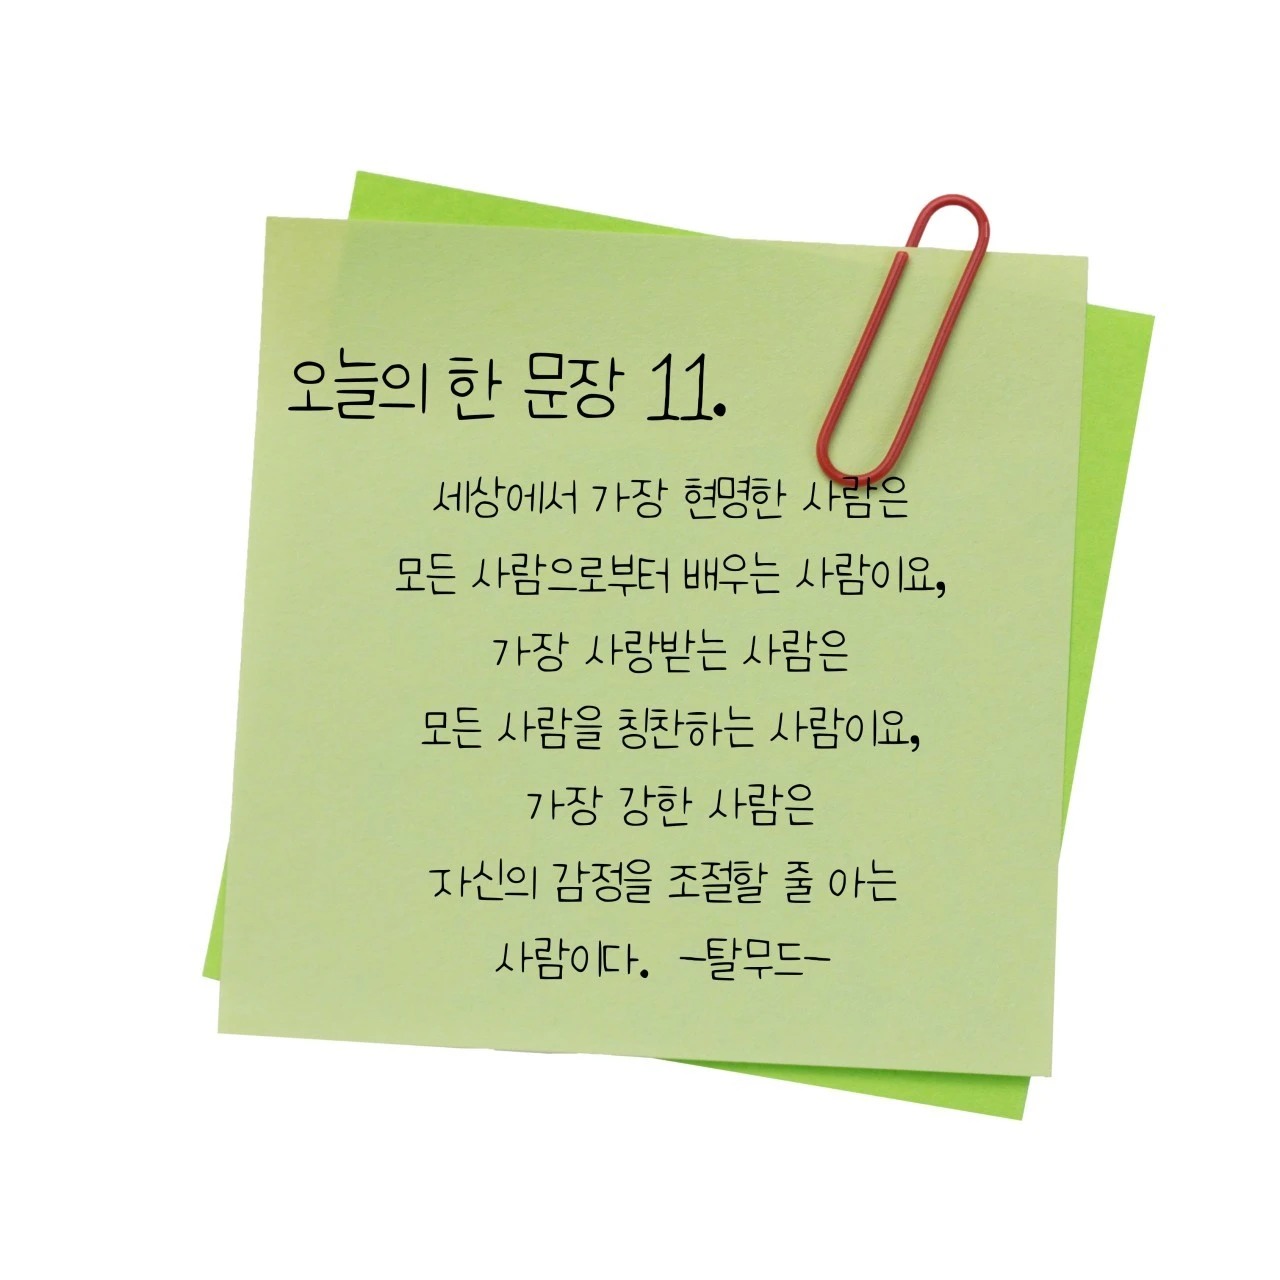 오늘의 한 문장 11.
세상에서 가장 현명한 사람은
모든 사람으로부터 배우는 사람이요,
가장 사랑받는 사람은
모든 사람을 칭찬하는 사람이요,
가장 강한 사람은
자신의 감정을 조절할 줄 아는
사람이다. -탈무드-